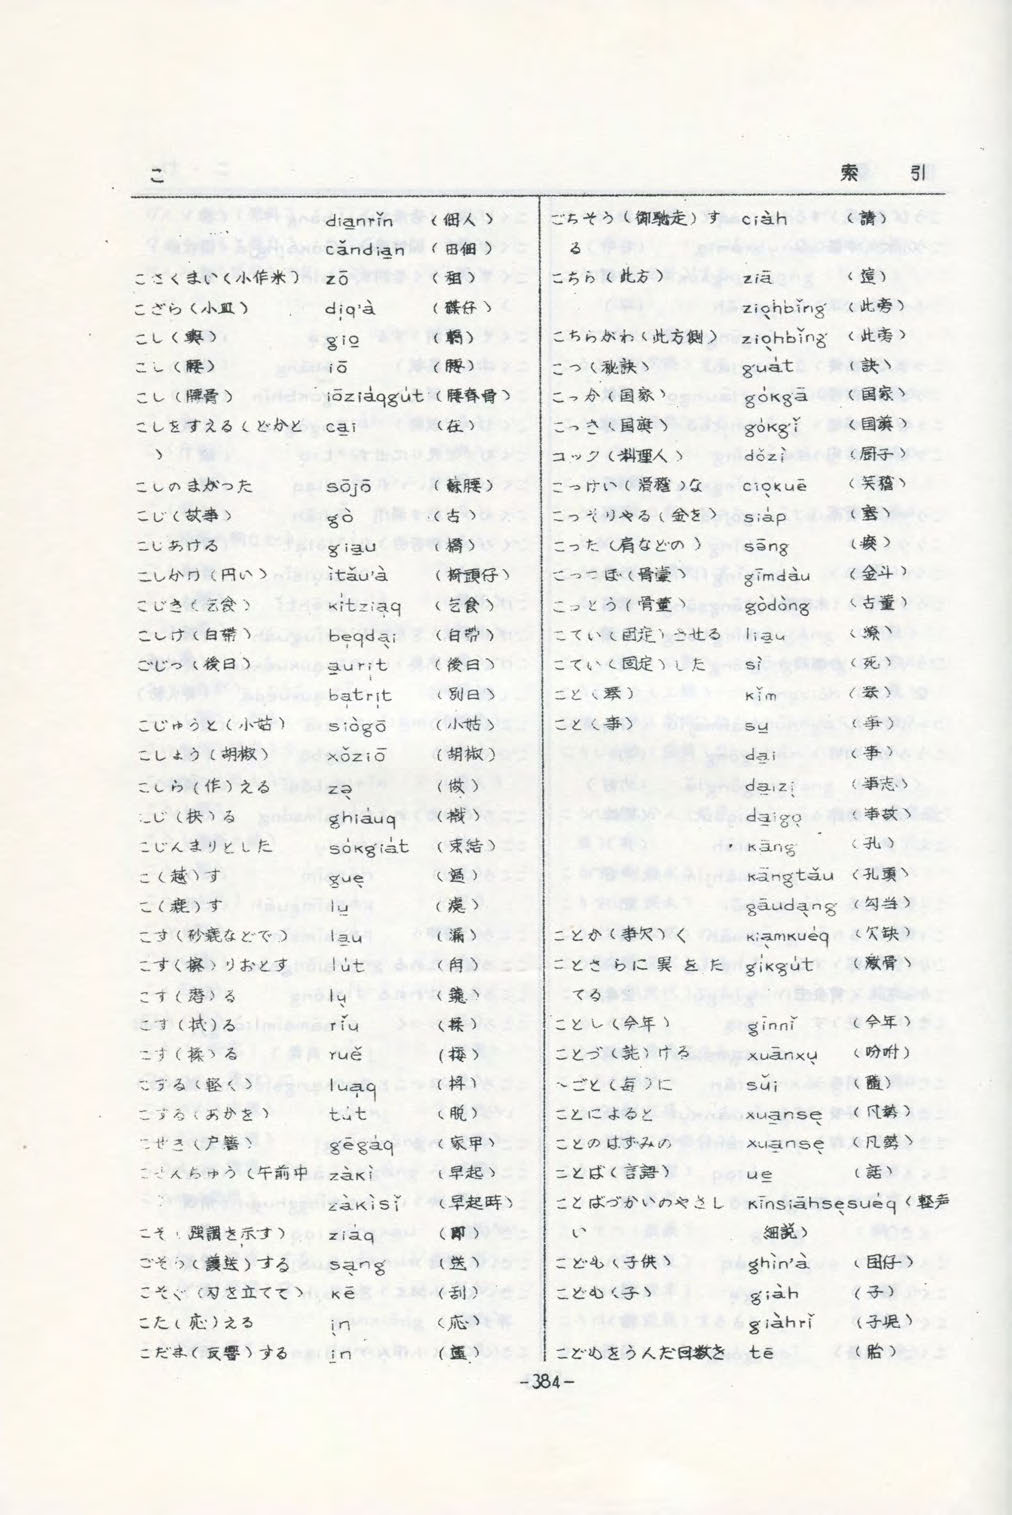 こ
索 引
dia̱nrǐn (佃人)
cǎndia̱n (田佃)
こさくまい(小作米) zō (租)
こざら(小皿) di̍q'à (碟仔)
こし(輿) gio̱ (轎)
こし(腰) iō (腰)
こし(腰骨) iōzia̍qgu̍t (腰脊骨)
こしをすえる(どかと ca̱i (在)
)
こしのまがった sōjō (躼腰)
こじ(故事) gò (古)
こじあける gia̱u (撬)
こしかけ(円い) ìtǎu'à (椅頭仔)
こじき(乞食) kı̍tzia̍q (乞食)
こしけ(白帯) be̍qda̱i (白帶)
ごじつ(後日) a̱uri̍t (後日)
ba̍tri̍t (別日)
こじゅうと(小姑) siògō (小姑)
こしょう(胡椒) xǒziō (胡椒)
こしら(作)える zə̱ (做)
こじ(抉)る ghiáuq
こじんまりとした sókgiát (束結)
こ(越)す gue̱ (過)
こ(鹿)す lu̱
こす(砂糖などで) la̱u (漏)
こす(擦)りおとす lu̍t
こす(磨)る lu̱
こす(拭)る rǐu (揉)
こす(揉)る ruě (挼)
こする(軽く) lua̍q (捋)
こする(あかを) tu̍t (脱)
こせき(戸籍) gēgáq (家甲)
こぜんちゅう(午前中 zàkì (早起)
) zàkìsǐ (早起時)
こそ(強調を示す) ziáq (即)
ごそう(護送)する sa̱ng (送)
こそぐ(刃を立てて) kē (刮)
こた(応)える i̱n (応)
こだま(反響)する i̱n
ごちそう(御馳走)す ciàh (請)
る
こちら(此方) ziā (這)
zio̱hbǐng (此旁)
こちらがわ(此方側) zio̱hbǐng (此旁)
こつ(秘訣) guát (訣)
こっか(国家) gókgā (国家)
こっき(国旗) gókgǐ (国旗)
コック(料理人) dǒzì (厨子)
こっけい(滑稽)な cio̱kuē (笑稽)
こっそりやる(金を) siáp
こった(肩などの) səng (痠)
こつつぼ(骨壷) gīmdàu (金斗)
こっとう(骨董) gòdòng (古董)
こてい(固定)させる lia̱u
こてい(固定)した sì (死)
こと(琴) kǐm (琴)
こと(事) su̱ (事)
da̱i (事)
da̱izi̱ (事志)
da̱igo̱ (事故)
kāng (孔)
kāngtǎu (孔頭)
gāuda̱ng (勾当)
ことか(事欠)く kia̱mkuéq (欠缺)
ことさらに異をた gíkgút (激骨)
てる
ことし(今年) gīnnǐ (今年)
ことづ(託)ける xuānxu̱ (吩咐)
～ごと(毎)に sǔi (隨)
ことによると xua̱nse̱ (凡勢)
ことのはずみの xua̱nse̱ (凡勢)
ことば(言語) ue̱ (話)
ことばづかいのやさし kīnsiāhse̱suéq (軽声
い 細説)
こども(子供) ghìn'à (囝仔)
こども(子) giàh (子)
giàhrǐ (子児)
こどもをうんだ回数を tē (胎)
-384-